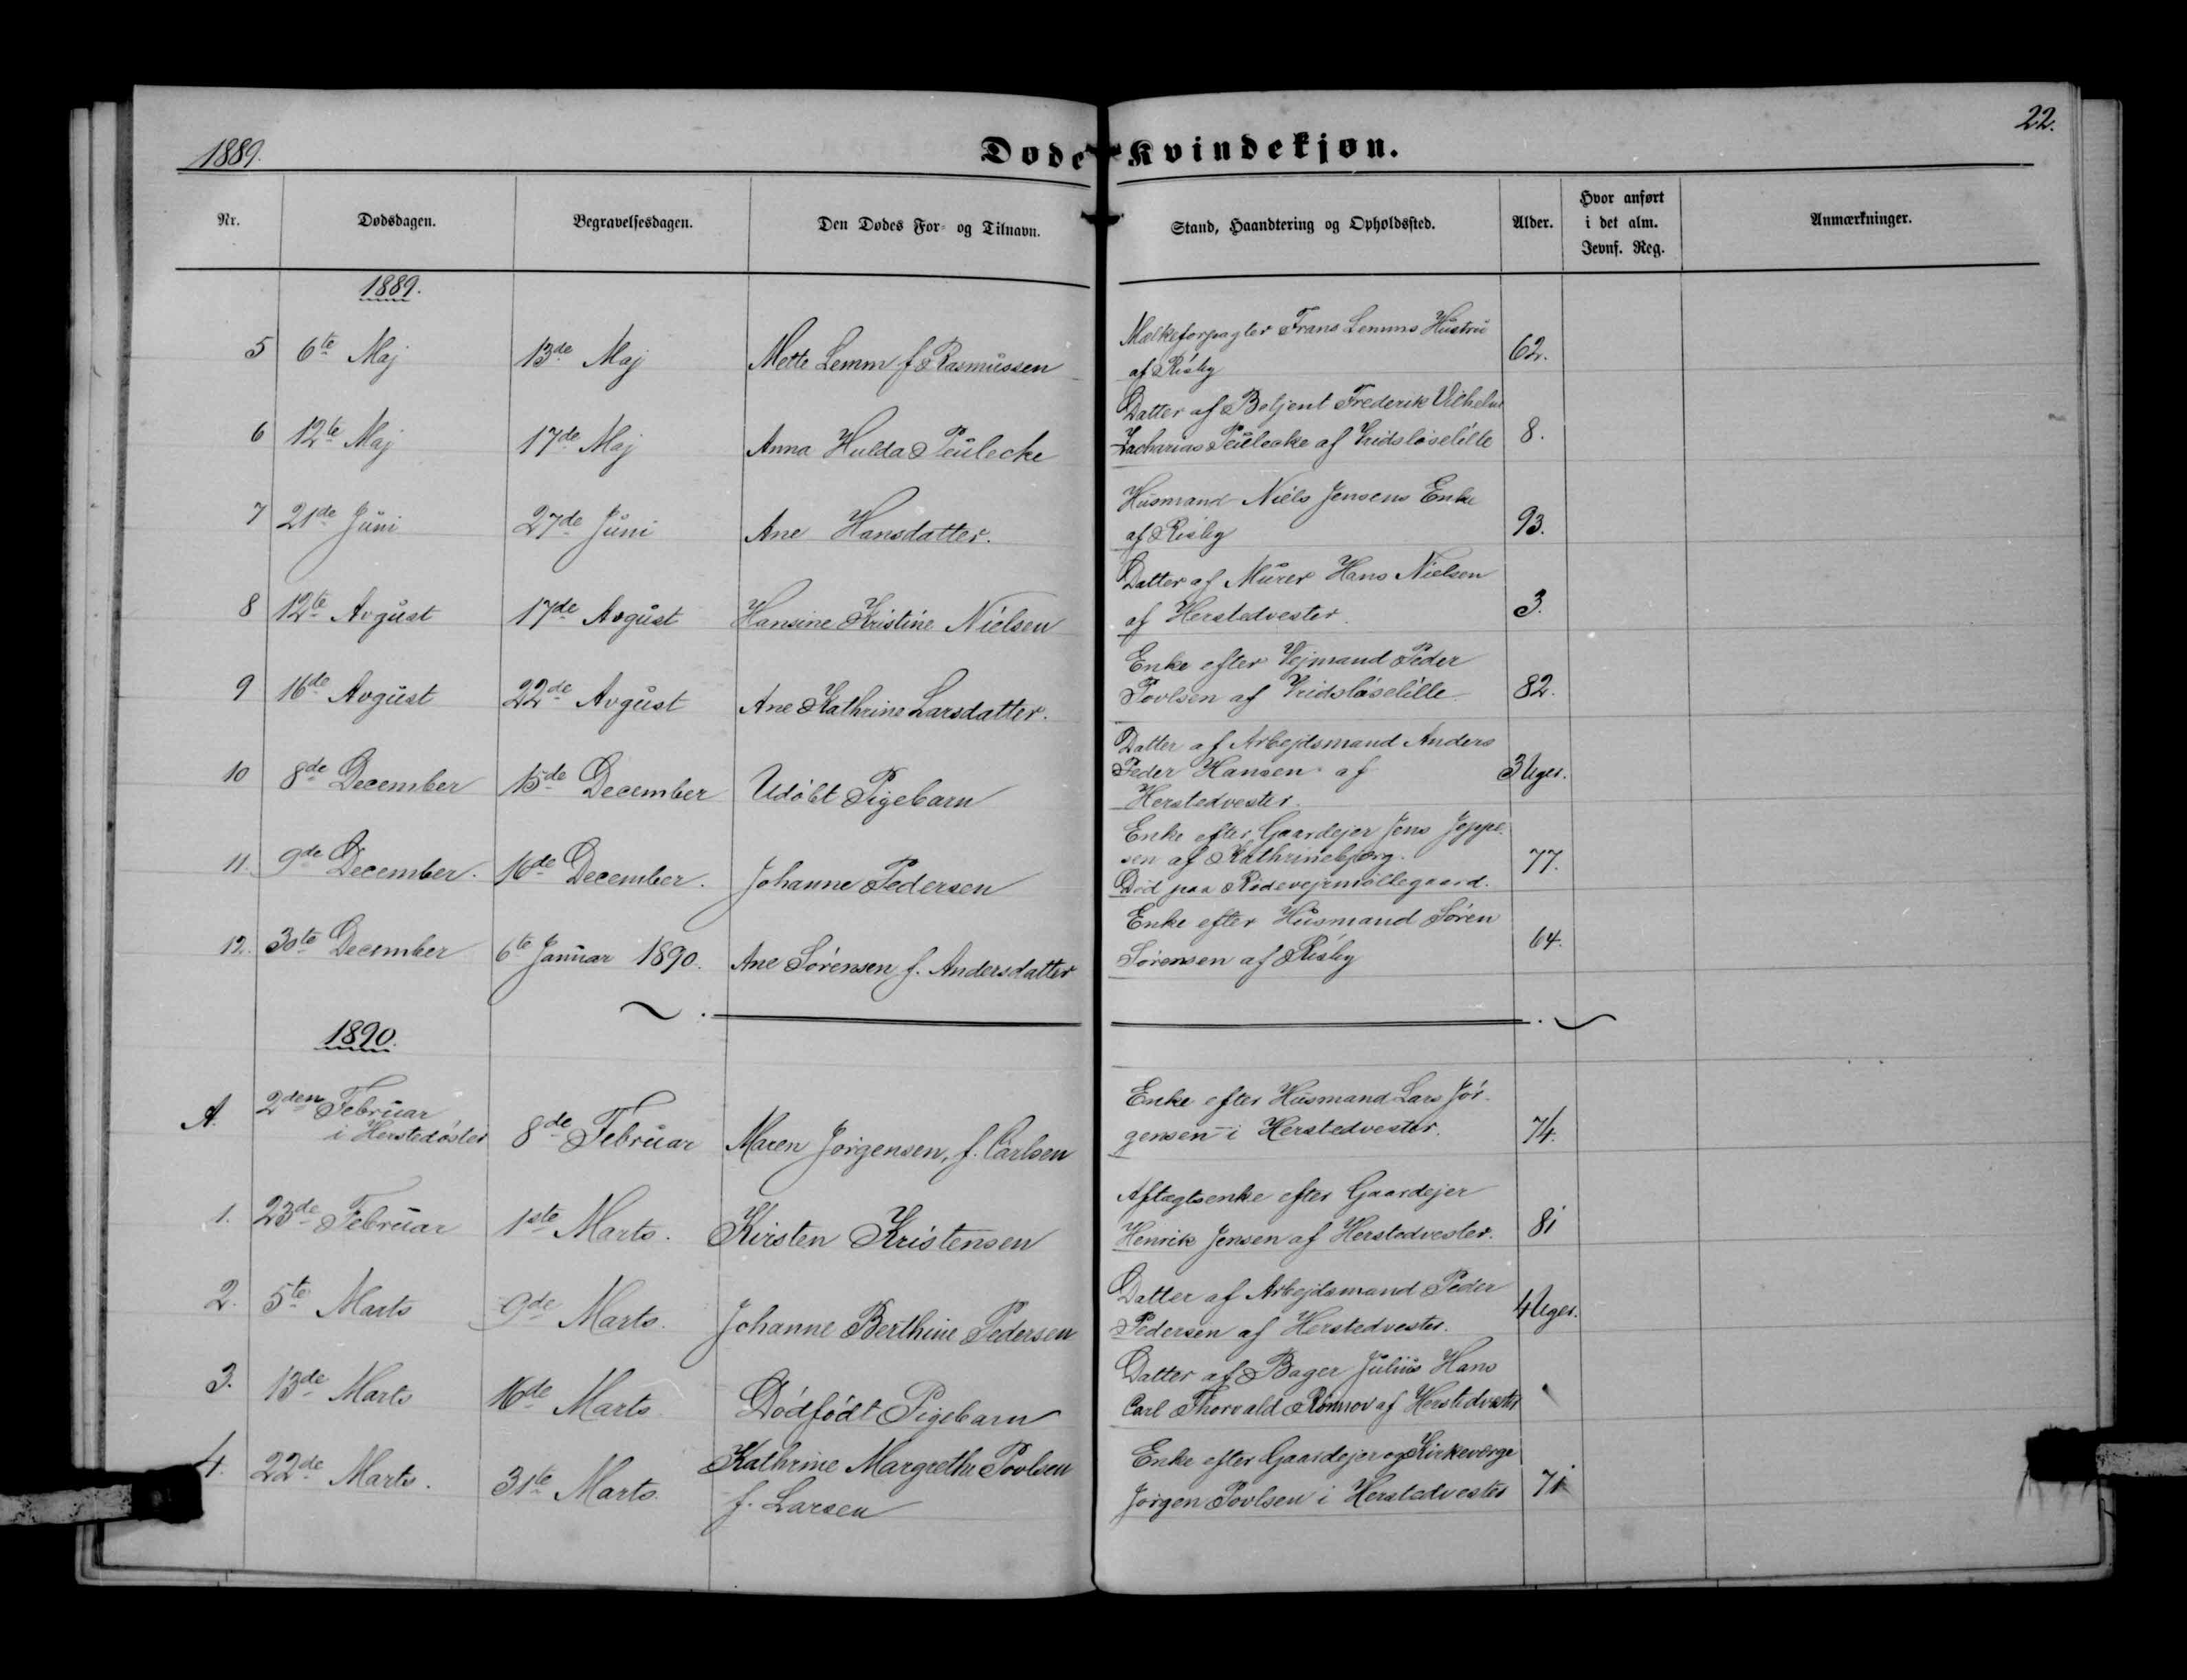 1889.
Døde Kvindekjøn.
22.
Nr. Dødsdagen. Begravelsesdagen. Den Dødes For- og Tilnavn. Stand, Haandtering og Opholdssted. Alder. Hvor anført i det alm. Jevnf. Reg. Anmærkninger.
1889.
5 6te Maj 13de Maj Mette Lemm f Rasmussen Mælkeforpagter Frans Lemms Hustru
af Risby 62.
6 12te Maj 17de Maj Anna Hulda Peulecke Datter af Betjent Frederik Vilhelm
Zacharias Peulecke af Vridsløselille 8.
7 21de Juni 27de Juni Ane Hansdatter. Husmand Niels Jensens Enke
af Risby 93.
8 12te Avgust 17de Avgust Hansine Kristine Nielsen Datter af Murer Hans Nielsen
af Herstedvester. 3.
9 16de Avgust 22de Avgust Ane Kathrine Larsdatter. Enke efter Vejmand Peder
Povlsen af Vridsløselille 82.
10 8de December 15de December Udøbt Pigebarn Datter af Arbejdsmand Anders
Peder Hansen af 3 Uger.
Herstedvester.
11. 9de December. 16de December. Johanne Pedersen Enke efter Gaardejer Jens Jeppe-
sen af Kathrinebjerg. 77.
Død paa Rødevejrmøllegaard.
12. 30te December 6te Januar 1890. Ane Sørensen f. Andersdatter Enke efter Husmand Søren
Sørensen af Risby 64.
1890.
A. 2den Februar
i Herstedøster 8de Februar Maren Jørgensen, f. Carlsen Enke efter Husmand Lars Jør-
gensen i Herstedvester. 74.
1. 23de Februar 1ste Marts. Kirsten Kristensen Aftægtsenke efter Gaardejer
Henrik Jensen af Herstedvester. 81
2. 5te Marts 9de Marts. Johanne Berthine Pedersen Datter af Arbejdsmand Peder
Pedersen af Herstedvester. 4 Uger.
3. 13de Marts 16de Marts Dødfødt Pigebarn Datter af Bager Julius Hans
Carl Thorvald Rønnov af Herstedvester
4. 22de Marts. 31te Marts. Kathrine Margrethe Povlsen
f. Larsen Enke efter Gaardejer og Kirkeværge
Jørgen Povlsen i Herstedvester 71